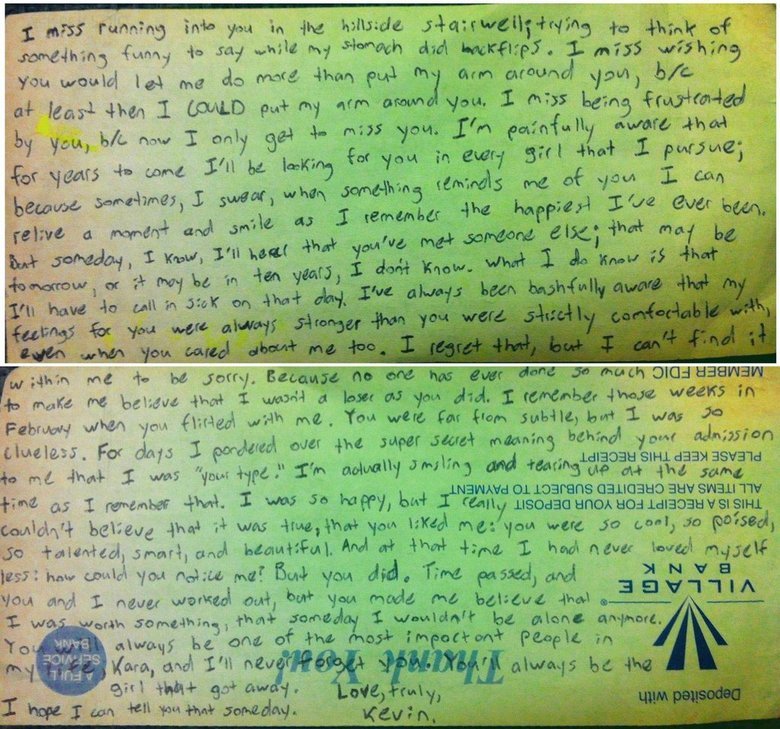 I miss running into you in the hillside stairwell; trying to think of
something funny to say while my stomach did backflips. I miss wishing
you would let me do more than put my arm around you, b/c
at least then I COULD put my arm around you. I miss being frustrated
by you, b/c now I only get to miss you. I'm painfully aware that
for years to come I'll be looking for you in every girl that I pursue;
because sometimes, I swear, when something reminds me of you I can
relive a moment and smile as I remember the happiest I've ever been.
But someday, I know, I'll hear that you've met someone else; that may be
tomorrow, or it may be in ten years, I don't know. What I do know is that
I'll have to call in sick on that day. I've always been bashfully aware that my
feelings for you were always stronger than you were strictly comfortable with,
even when you cared about me too. I regret that, but I can't find it
within me to be sorry. Because no one has ever done so much
MEMBER FDIC
to make me believe that I wasn't a loser as you did. I remember those weeks in
February when you flirted with me. You were far from subtle, but I was so
clueless. For days I pondered over the super secret meaning behind your admission
PLEASE KEEP THIS RECEIPT
to me that I was "your type." I'm actually smiling and tearing up at the same
ALL ITEMS ARE CREDITED SUBJECT TO PAYMENT
time as I remember that. I was so happy, but I really
THIS IS A RECEIPT FOR YOUR DEPOSIT
couldn't believe that it was true, that you liked me: you were so cool, so poised,
so talented, smart, and beautiful. And at that time I had never loved myself
less: how could you notice me? But you did. Time passed, and
VILLAGE
BANK
you and I never worked out, but you made me believe that
I was worth something, that someday I wouldn't be alone anymore.
You will always be one of the most important people in
A FULL
SERVICE
BANK
my life, Kara, and I'll never forget you. You'll always be the
Thank You!
girl that got away. Love, truly,
Deposited with
I hope I can tell you that someday. Kevin.